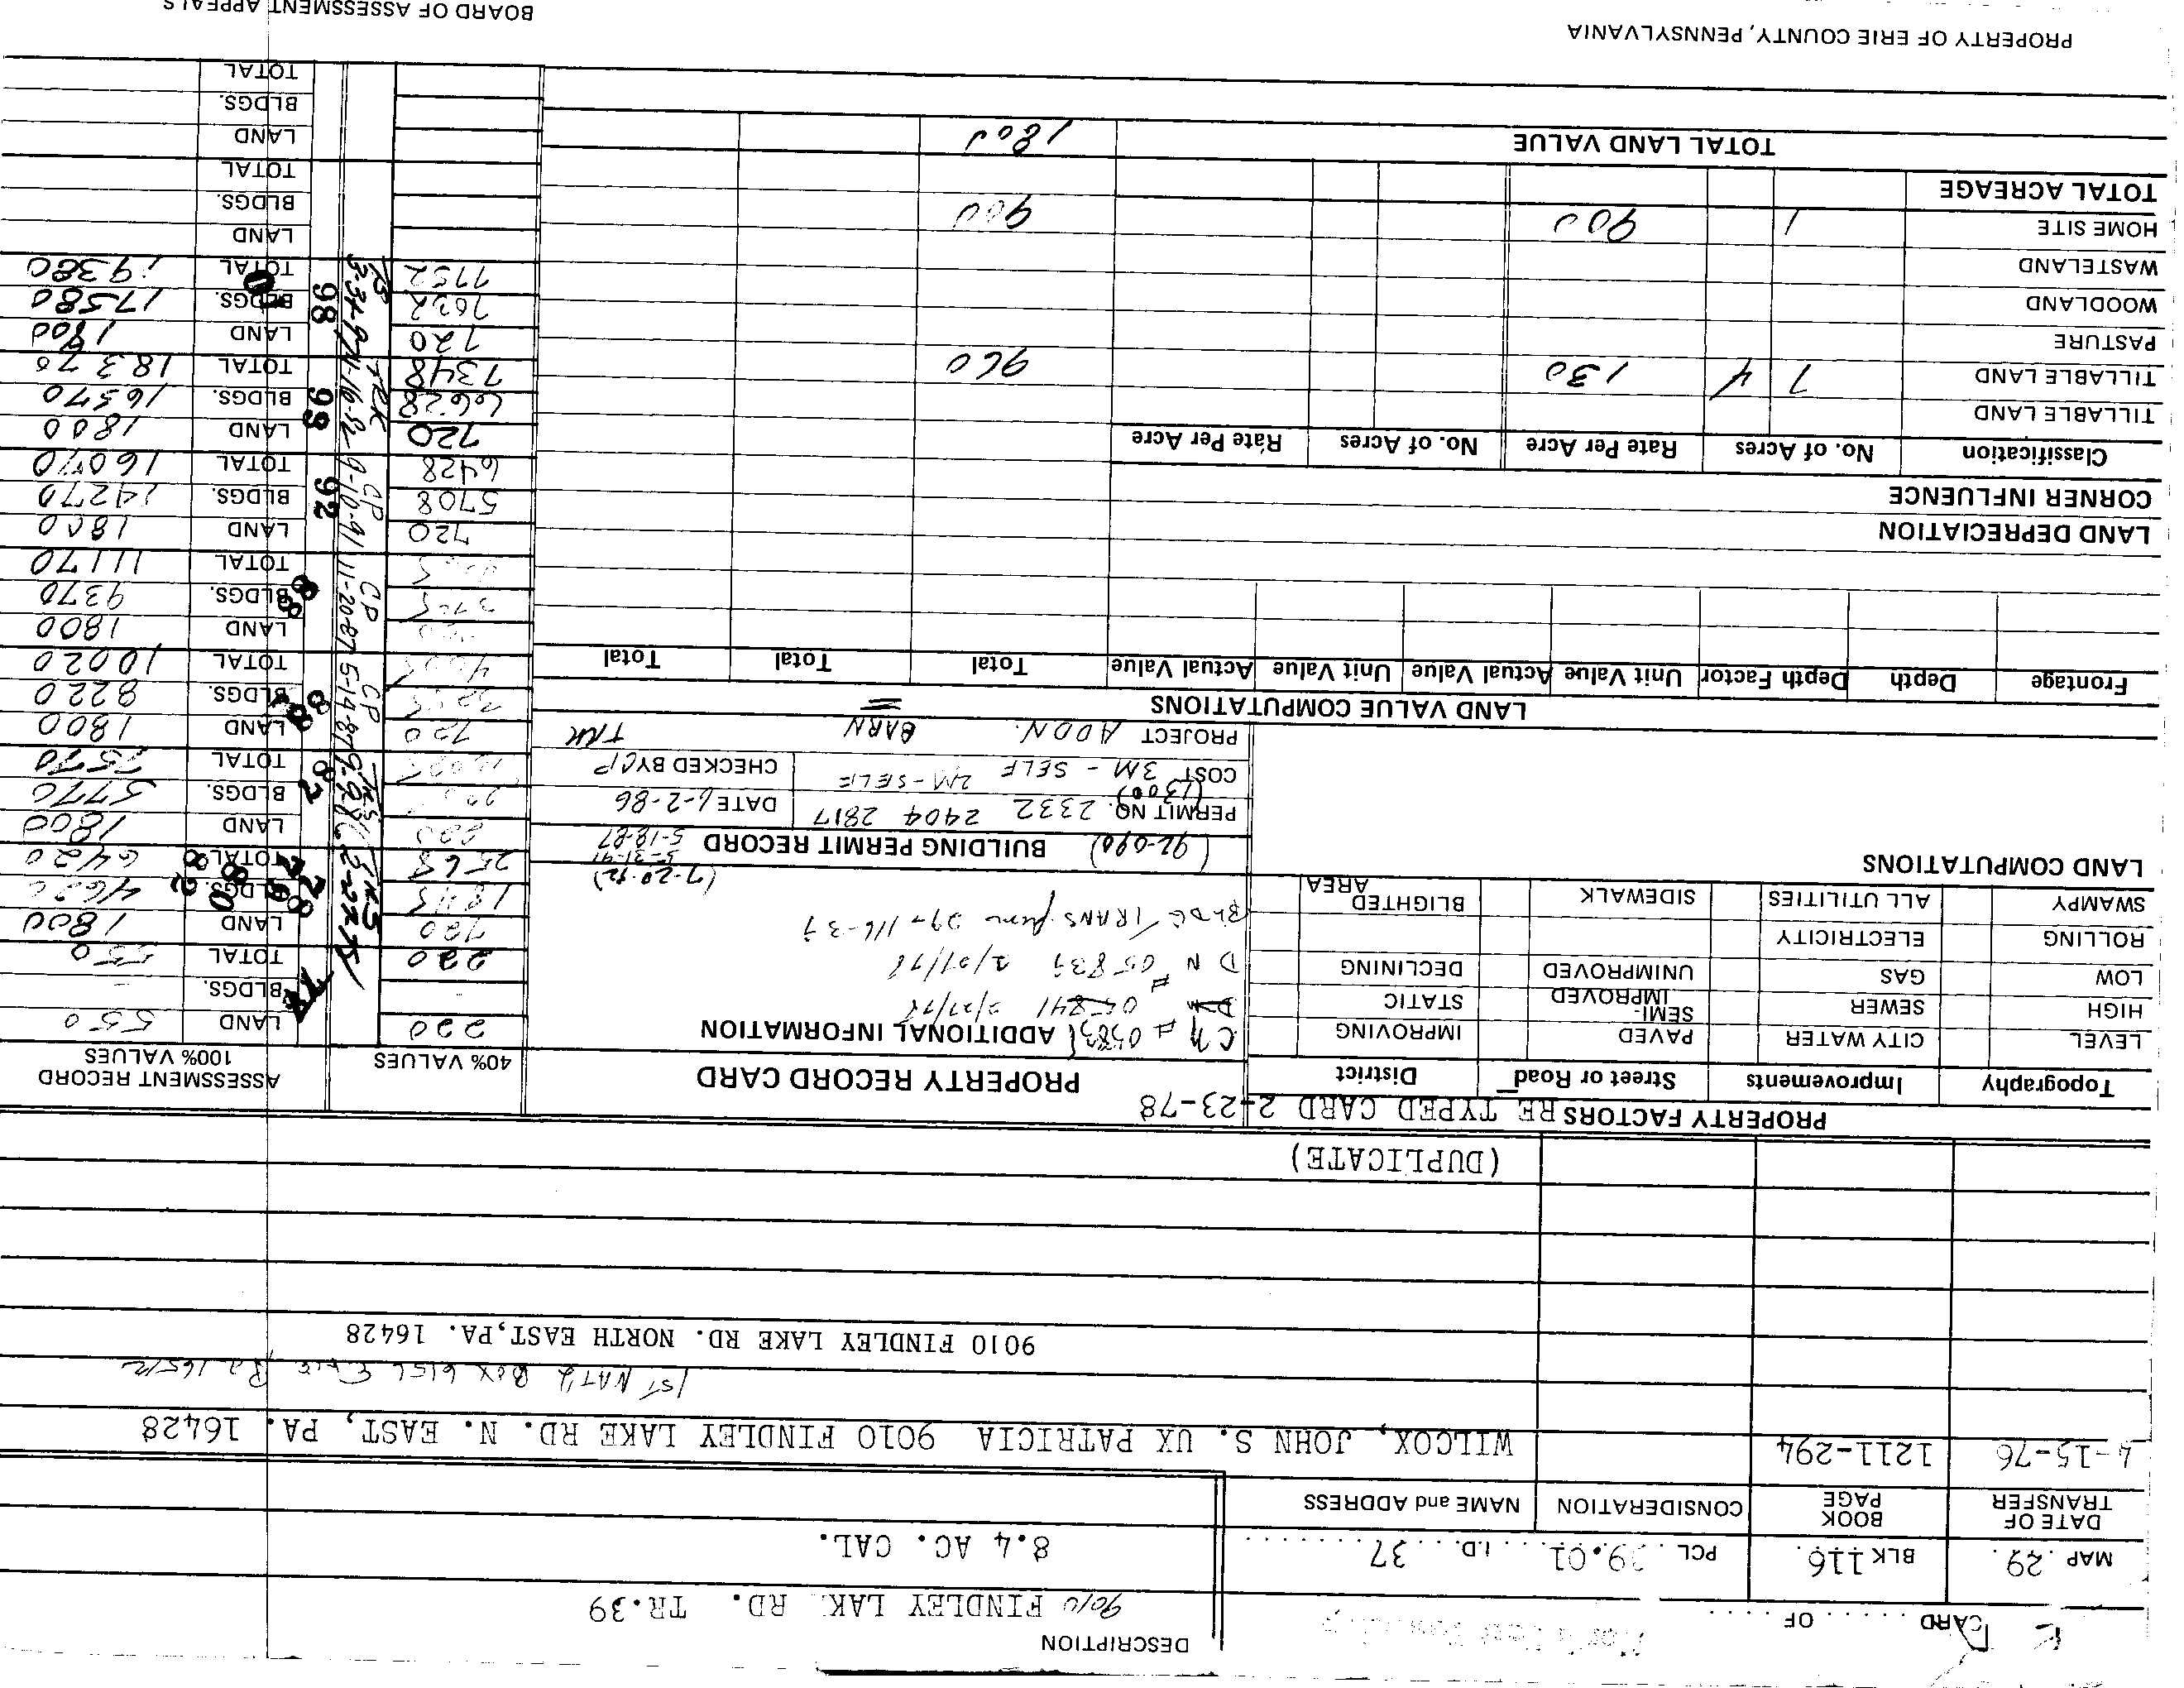 CARD ..... OF ....
DESCRIPTION
9010 FINDLEY LAK. RD. TR.39
8.4 AC. CAL.
MAP 29. BLK 116. PCL. 39.01. I.D. 37
DATE OF TRANSFER BOOK PAGE CONSIDERATION NAME and ADDRESS
4-15-76 1211-294 WILCOX, JOHN S. UX PATRICIA 9010 FINDLEY LAKE RD. N. EAST, PA. 16428
1ST NAT'L BOX 615L ERIE Pa 16512
9010 FINDLEY LAKE RD. NORTH EAST, PA. 16428
(DUPLICATE)
PROPERTY FACTORS RE TYPED CARD 2-23-78
Topography Improvements Street or Road District
LEVEL CITY WATER PAVED IMPROVING
HIGH SEWER SEMI-IMPROVED STATIC
LOW GAS UNIMPROVED DECLINING
ROLLING ELECTRICITY
SWAMPY ALL UTILITIES SIDEWALK BLIGHTED AREA
LAND COMPUTATIONS
PROPERTY RECORD CARD
ADDITIONAL INFORMATION
05841 2/27/78
D N # 05839 2/27/78
BLDG TRANS from 29-116-39
(7-20-92)
(92-090) BUILDING PERMIT RECORD 5-31-91 5-18-87
PERMIT NO. 2332 2404 2817 DATE 6-2-86
(1300)
COST 3M - SELF 2M-SELF CHECKED BY CP
PROJECT ADDN. BARN TRK
40% VALUES
ASSESSMENT RECORD
100% VALUES
220 LAND 550
BLDGS.
220 TOTAL 550
720 LAND 1800
1848 BLDGS. 4620
2568 TOTAL 6420
LAND 1800
BLDGS. 5770
TOTAL 7570
720 LAND 1800
BLDGS. 8220
TOTAL 10020
LAND 1800
BLDGS. 9370
TOTAL 11170
720 LAND 1800
5708 BLDGS. 14270
6428 TOTAL 16070
720 LAND 1800
6628 BLDGS. 16570
7348 TOTAL 18370
720 LAND 1800
7032 BLDGS. 17580
7752 TOTAL 19380
LAND
BLDGS.
TOTAL
LAND
BLDGS.
TOTAL
74
78
80
82
82
88
92
93
98
9-9-81
5-14-87
11-20-87
9-10-91
CP
CP
CP
TRK
LAND VALUE COMPUTATIONS
Frontage Depth Depth Factor Unit Value Actual Value Unit Value Actual Value Total Total Total
LAND DEPRECIATION
CORNER INFLUENCE
Classification No. of Acres Rate Per Acre No. of Acres Rate Per Acre
TILLABLE LAND
TILLABLE LAND 7 4 130 960
PASTURE
WOODLAND
WASTELAND
HOME SITE 1 900 900
TOTAL ACREAGE
TOTAL LAND VALUE 1800
PROPERTY OF ERIE COUNTY, PENNSYLVANIA
BOARD OF ASSESSMENT APPEALS